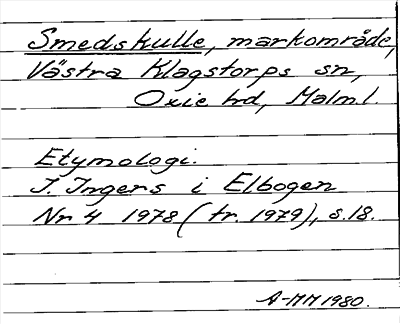 Smedskulle, markområde,
Västra Klagstorps sn,
Oxie hd, Malm.l.
Etymologi.
I. Ingers i Elbogen
Nr 4 1978 (tr. 1979), s.18.
A-MM 1980.